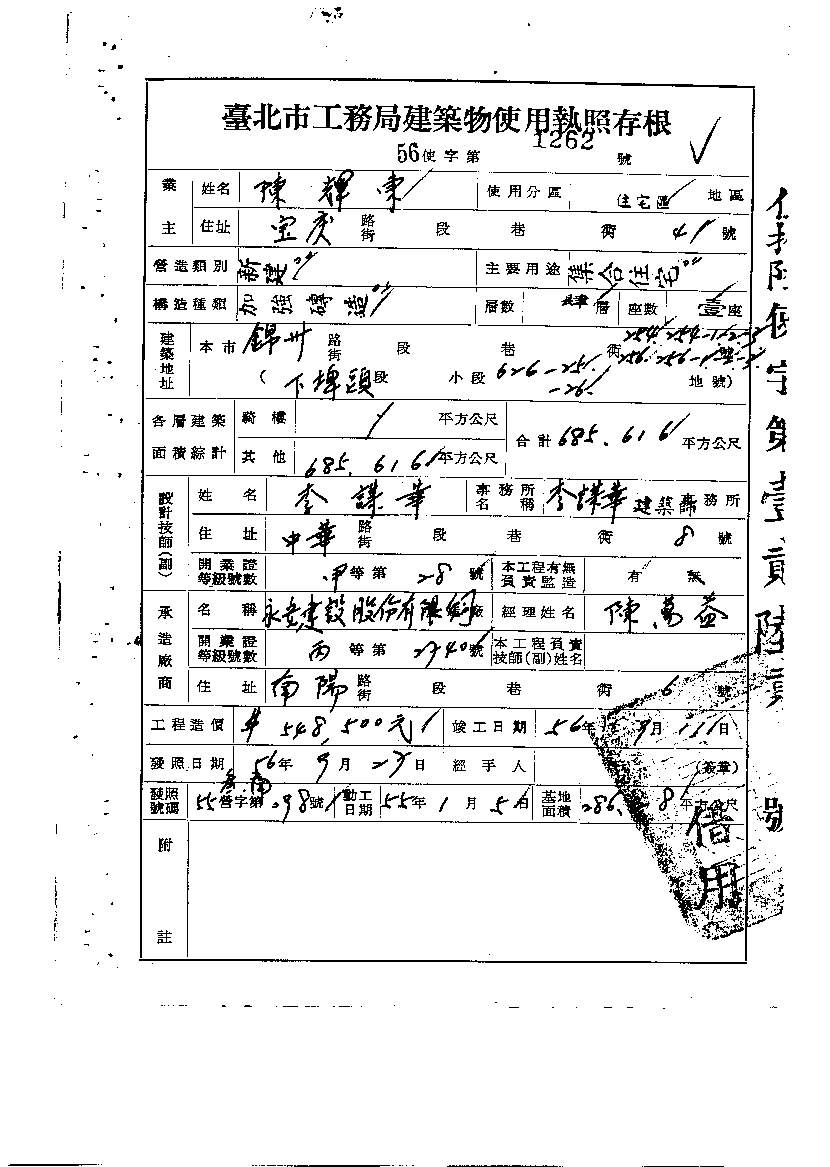 臺北市工務局建築物使用執照存根
56使字第 1262 號
業主 姓名 陳輝東 使用分區 住宅區 地區
住址 宝慶 路街 段 巷 街 41 號
營造類別 新建 主要用途 集合住宅
構造種類 加強磚造 層數 層 座數 壹座
建築地址 本市 錦州 路街 段 巷 街 254.254-1
256.256-1
(下埤頭段 小段 626-25 地號)
-26
各層建築面積綜計 騎樓 / 平方公尺 合計 685.616 平方公尺
其他 685.616 平方公尺
設計技師(副) 姓名 李謀華 事務所名稱 李謀華建築師事務所
住址 中華 路街 段 巷 街 8 號
開業證等級號數 甲等第 28 號 本工程有無負責監造 有 無
承造廠商 名稱 永安建設股份有限公司廠 經理姓名 陳萬益
開業證等級號數 丙等第 號 本工程負責技師(副)姓名
住址 南陽 路街 段 巷 街 6 號
工程造價 548,500元 竣工日期 56年 9月 11日
發照日期 56年 9月 23日 經手人 (簽章)
發照號碼 55營字第 298號 動工日期 55年 1月 5日 基地面積 286. 8 平方公尺
附註
借用
使字第壹貳陸貳號